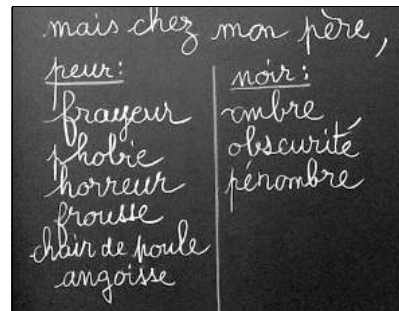 mais chez mon père,
peur:
frayeur
phobie
horreur
frousse
chair de poule
angoisse
noir:
ombre
obscurité
pénombre